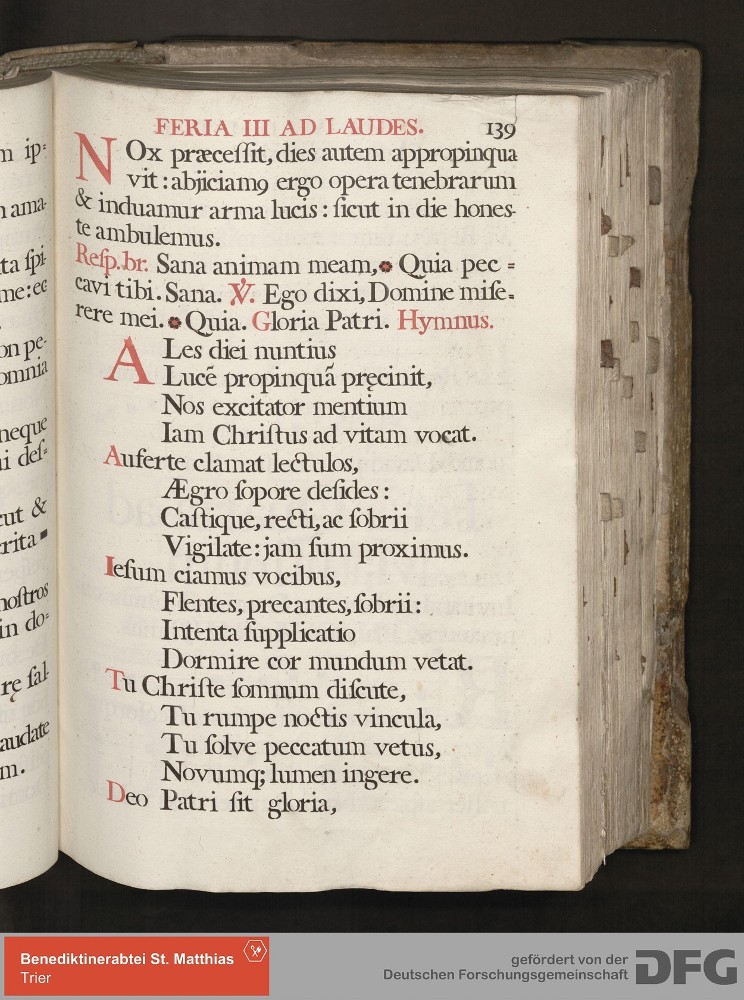 FERIA III AD LAUDES. 139
NOx præceſſit, dies autem appropinqua
vit : abjiciamꝯ ergo opera tenebrarum
& induamur arma lucis : ſicut in die hones-
te ambulemus.
Reſp. br. Sana animam meam, * Quia pec =
cavi tibi. Sana. ℣. Ego dixi, Domine miſe-
rere mei. * Quia. Gloria Patri. Hymnus.
ALes diei nuntius
Lucē propinquā pręcinit,
Nos excitator mentium
Iam Chriſtus ad vitam vocat.
Auferte clamat lectulos,
Ægro ſopore deſides :
Caſtique, recti, ac ſobrii
Vigilate : jam ſum proximus.
Ieſum ciamus vocibus,
Flentes, precantes, ſobrii :
Intenta ſupplicatio
Dormire cor mundum vetat.
Tu Chriſte ſomnum diſcute,
Tu rumpe noctis vincula,
Tu ſolve peccatum vetus,
Novumq; lumen ingere.
Deo Patri ſit gloria,
m ip=
ama-
ta ſpi
me: ec
on pe-
omnia
neque
i deſ-
cut &
rita
noſtros
in do=
rę ſal-
audate
m.
Benediktinerabtei St. Matthias
Trier
gefördert von der
Deutschen Forschungsgemeinschaft
DFG